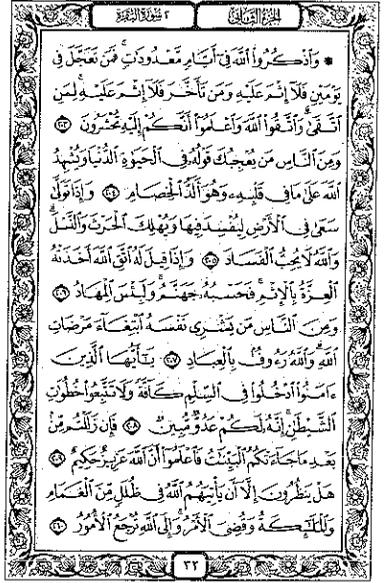 الجزء الثاني
٢ سورة البقرة
* وَاذْكُرُوا اللَّهَ فِي أَيَّامٍ مَعْدُودَاتٍ فَمَن تَعَجَّلَ فِي
يَوْمَيْنِ فَلَا إِثْمَ عَلَيْهِ وَمَن تَأَخَّرَ فَلَا إِثْمَ عَلَيْهِ لِمَنِ
اتَّقَى وَاتَّقُوا اللَّهَ وَاعْلَمُوا أَنَّكُمْ إِلَيْهِ تُحْشَرُونَ ٢٠٣
وَمِنَ النَّاسِ مَن يُعْجِبُكَ قَوْلُهُ فِي الْحَيَوٰةِ الدُّنْيَا وَيُشْهِدُ
اللَّهَ عَلَىٰ مَا فِي قَلْبِهِ وَهُوَ أَلَدُّ الْخِصَامِ ٢٠٤ وَإِذَا تَوَلَّىٰ
سَعَىٰ فِي الْأَرْضِ لِيُفْسِدَ فِيهَا وَيُهْلِكَ الْحَرْثَ وَالنَّسْلَ
وَاللَّهُ لَا يُحِبُّ الْفَسَادَ ٢٠٥ وَإِذَا قِيلَ لَهُ اتَّقِ اللَّهَ أَخَذَتْهُ
الْعِزَّةُ بِالْإِثْمِ فَحَسْبُهُ جَهَنَّمُ وَلَبِئْسَ الْمِهَادُ ٢٠٦
وَمِنَ النَّاسِ مَن يَشْرِي نَفْسَهُ ابْتِغَاءَ مَرْضَاتِ
اللَّهِ وَاللَّهُ رَءُوفٌ بِالْعِبَادِ ٢٠٧ يَٰأَيُّهَا الَّذِينَ
ءَامَنُوا ادْخُلُوا فِي السِّلْمِ كَافَّةً وَلَا تَتَّبِعُوا خُطُوَٰتِ
الشَّيْطَٰنِ إِنَّهُ لَكُمْ عَدُوٌّ مُّبِينٌ ٢٠٨ فَإِن زَلَلْتُم مِّن
بَعْدِ مَا جَاءَتْكُمُ الْبَيِّنَٰتُ فَاعْلَمُوا أَنَّ اللَّهَ عَزِيزٌ حَكِيمٌ ٢٠٩
هَلْ يَنظُرُونَ إِلَّا أَن يَأْتِيَهُمُ اللَّهُ فِي ظُلَلٍ مِّنَ الْغَمَامِ
وَالْمَلَٰئِكَةُ وَقُضِيَ الْأَمْرُ وَإِلَى اللَّهِ تُرْجَعُ الْأُمُورُ ٢١٠
٣٢